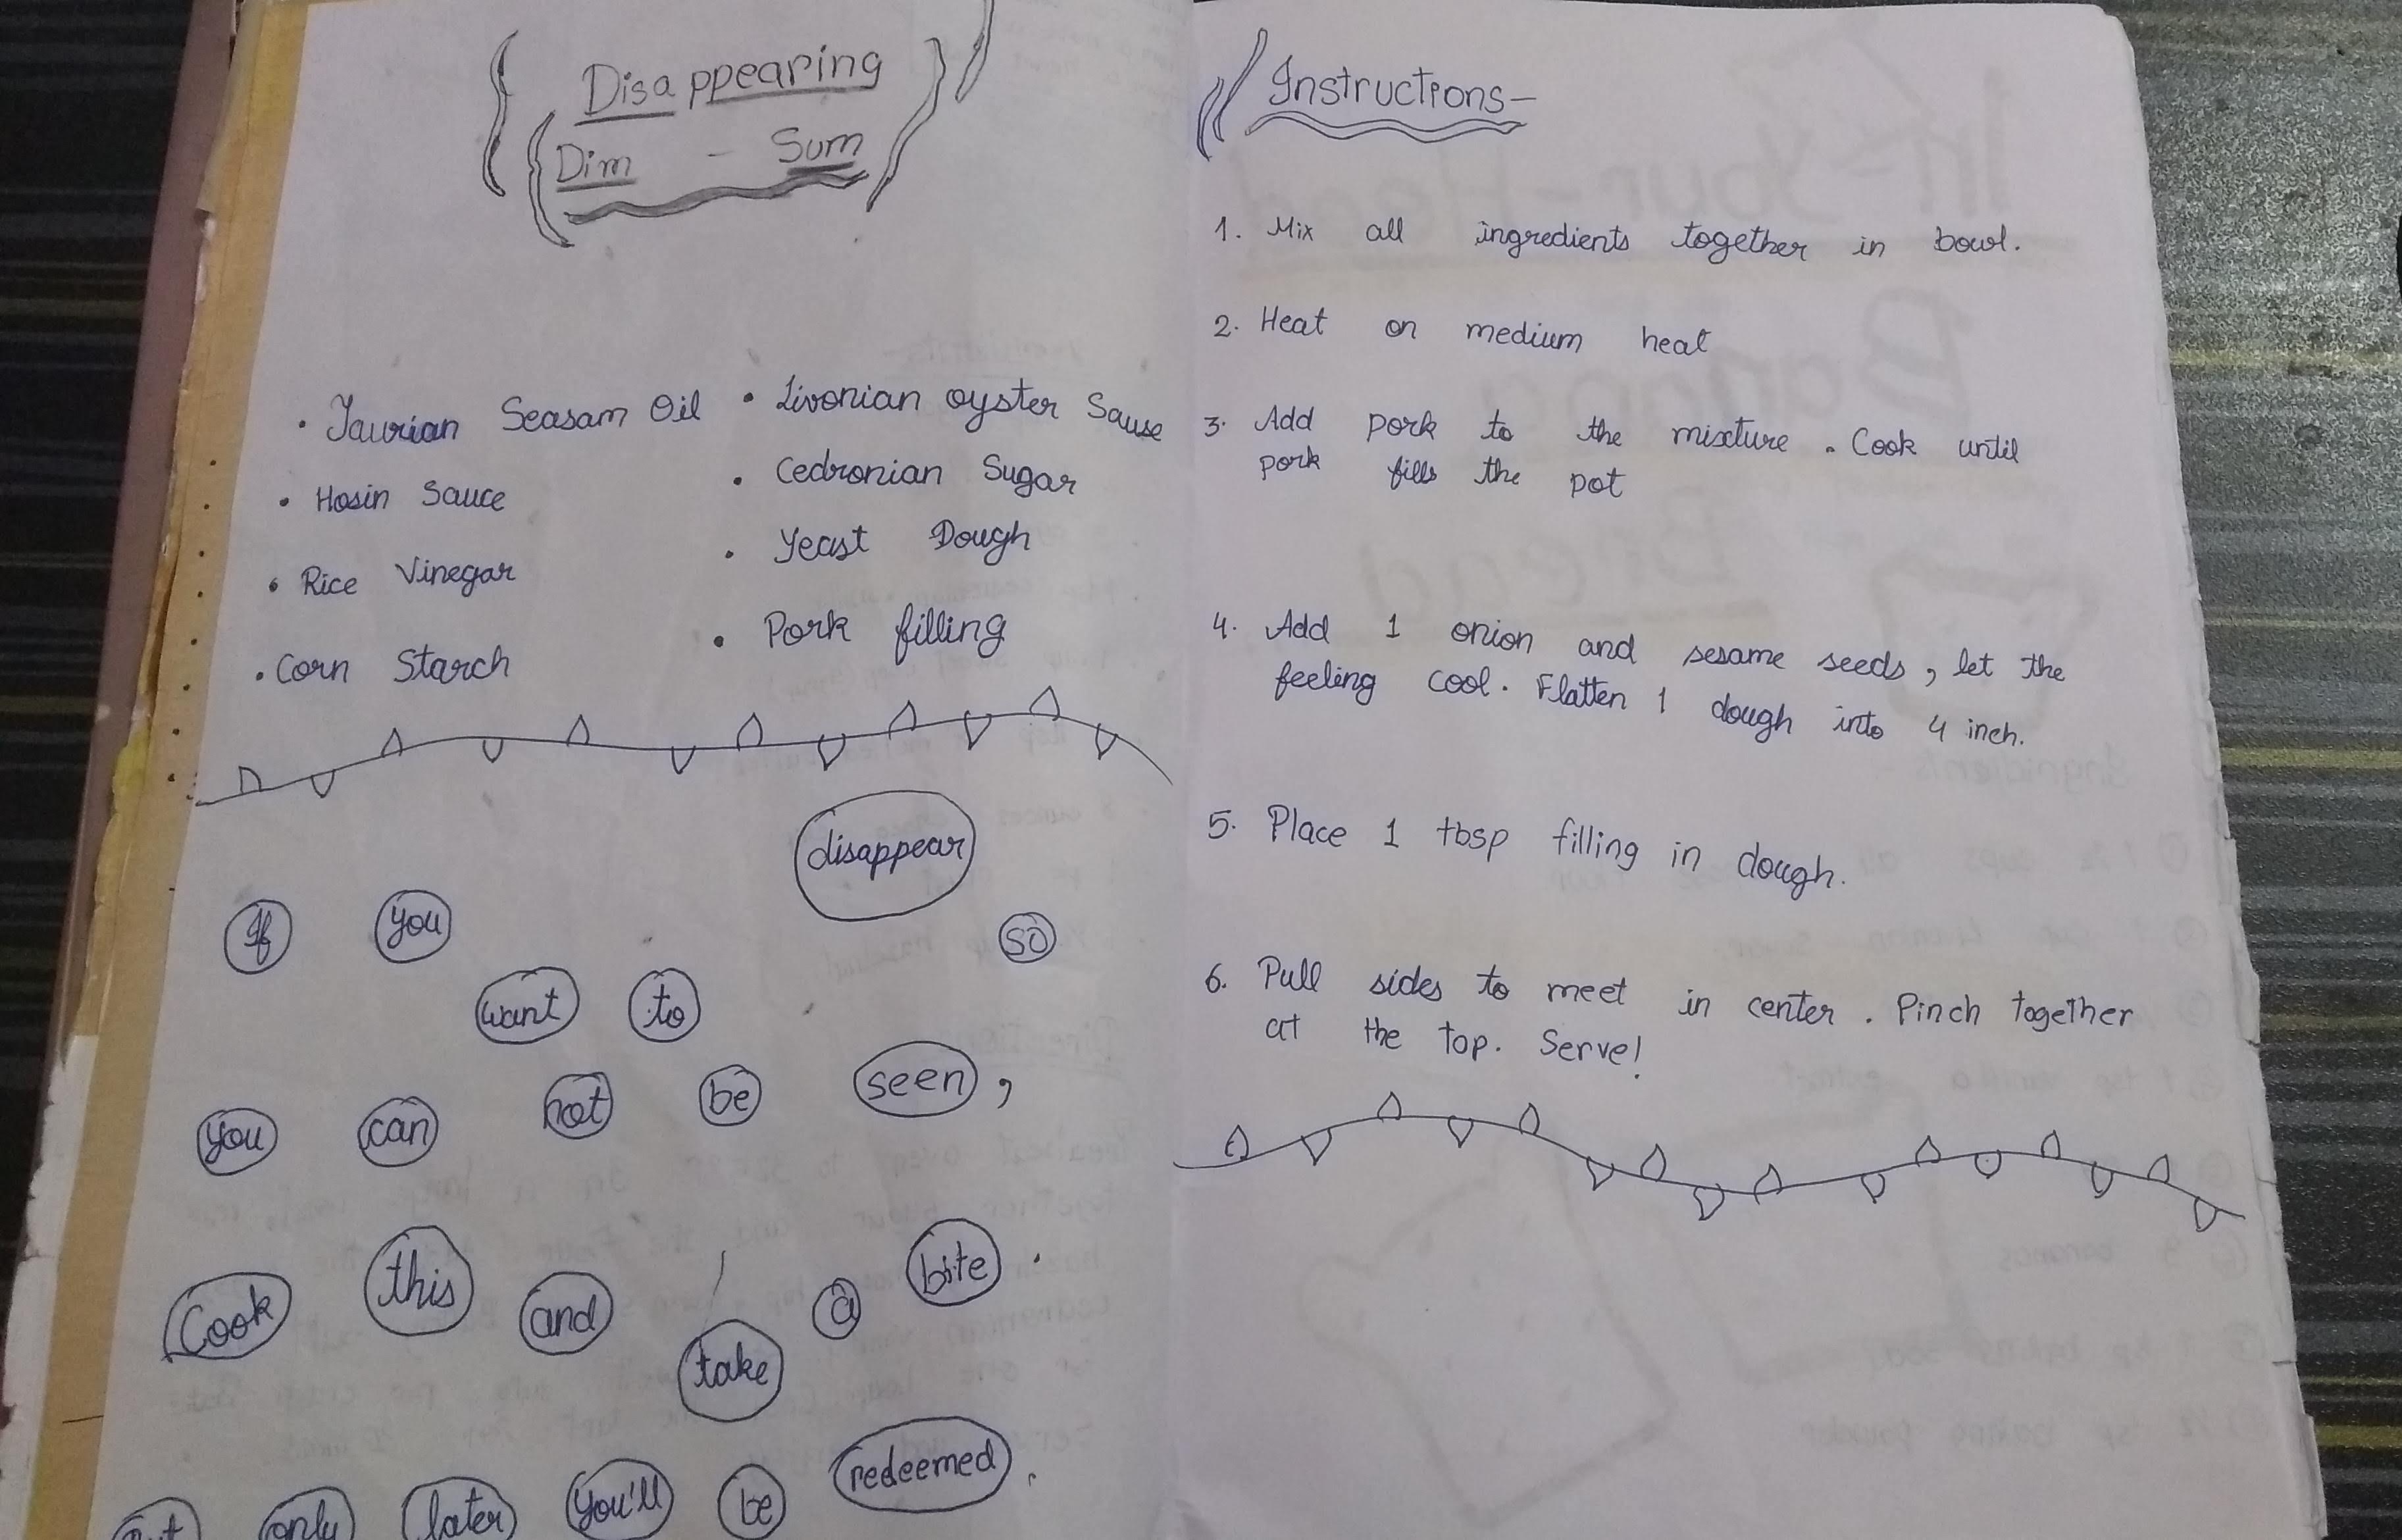 Disappearing
Dim - Sum
• Taurian Seasam Oil
• Hosin Sauce
• Rice Vinegar
• Corn Starch
• Livonian oyster Sause
• Cedronian Sugar
• Yeast Dough
• Pork filling
If you want to disappear so
you can not be seen,
Cook this and take a bite.
But only later you'll be redeemed.
Instructions-
1. Mix all ingredients together in bowl.
2. Heat on medium heat
3. Add pork to the mixture. Cook until
pork fills the pot
4. Add 1 onion and sesame seeds, let the
feeling cool. Flatten 1 dough into 4 inch.
5. Place 1 tbsp filling in dough.
6. Pull sides to meet in center. Pinch together
at the top. Serve!